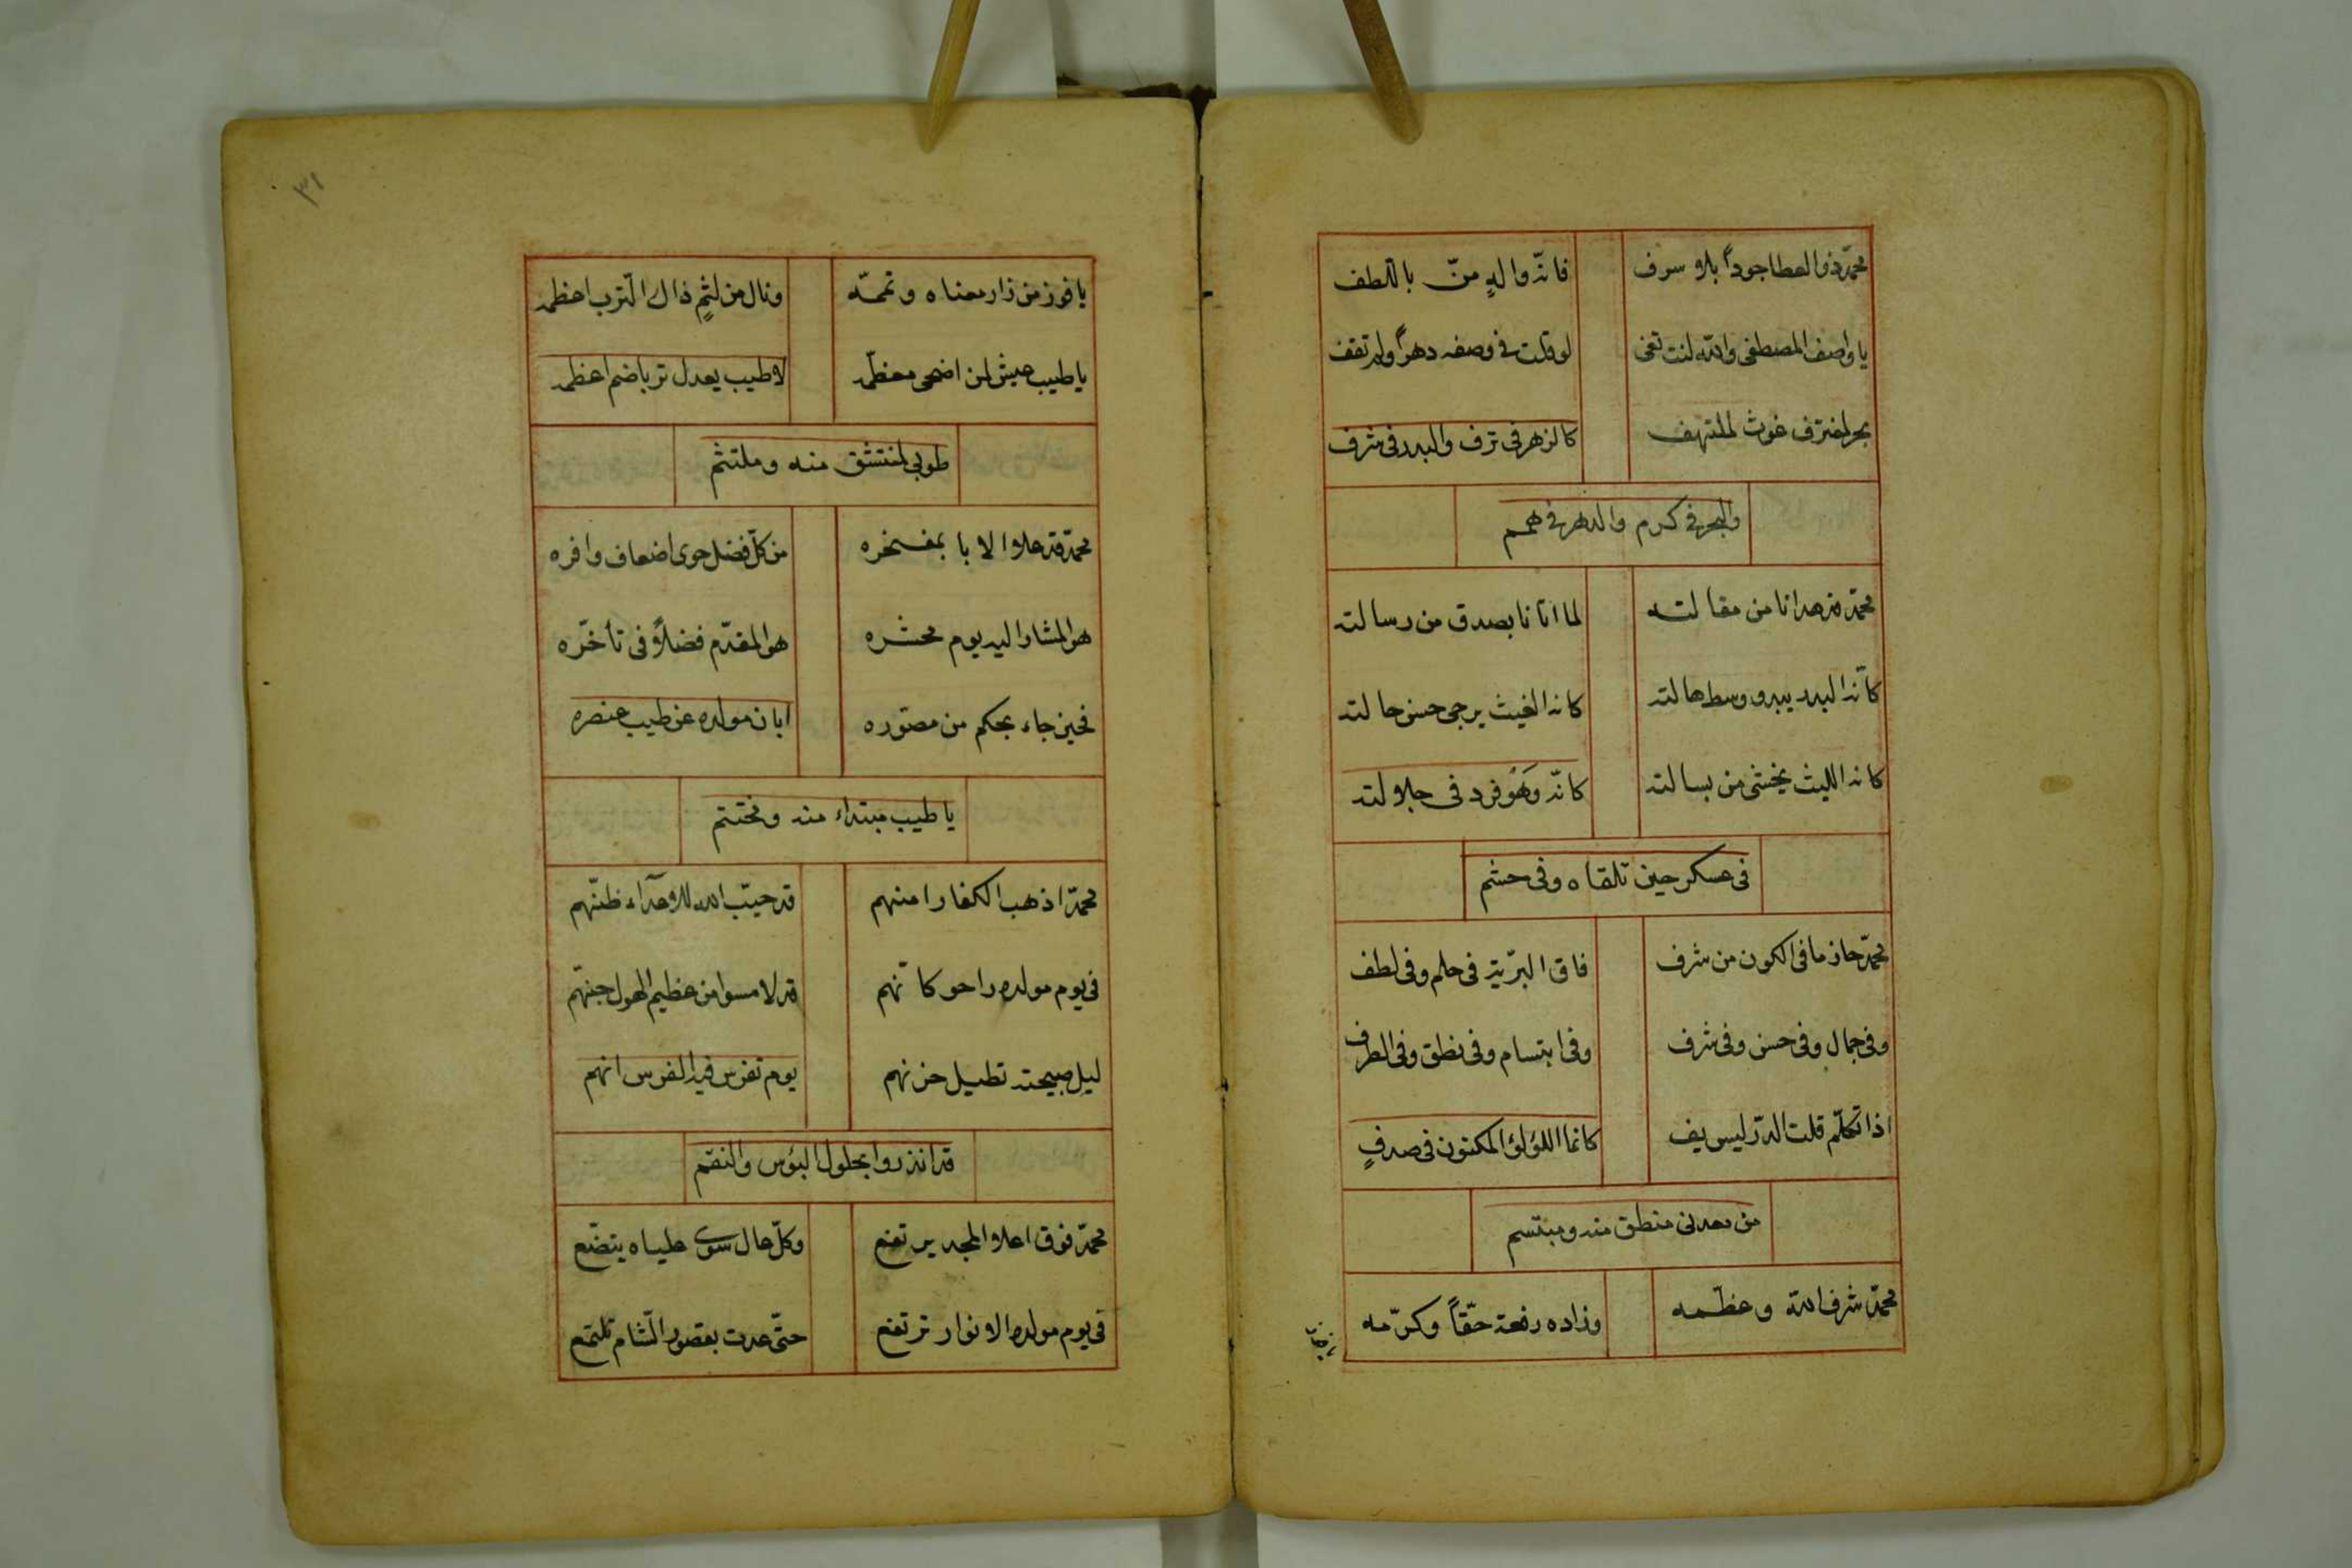 محمّد ذو العطا جوداً بلا سرف فانّه والدٍ منّ باللطف
يا واصف المصطفى والله لنت تفى لو قلت فى وصفه دهراً ولم تقف
بحر لمغترف غوث لملتهف كالزهر فى ترف والبدر فى شرف
والبحر فى كرم والدهر فى همم
محمّد قد هدانا من مقالته لما اتانا بصدق من رسالته
كأنه البدر يبدو وسط هالته كانه الغيث يرجى حسن حالته
كانه الليث يخشى من بسالته كانّه وَهُو فرد فى جلالته
فى عسكر حين تلقاه وفى حشم
محمّد حاز ما فى الكون من شرف فاق البرّيّة فى حلم وفى لطف
وفى جمال وفى حسن وفى شرف وفى ابتسام وفى نطق وفى الطرف
اذا تكلّم قلت الدرّ ليس يف كانما اللؤلؤ المكنون فى صدفٍ
من معدنى منطق منه ومبتسم
محمّد شرف الله وعظّمه وزاده رفعة حقّاً وكرّمه
يا فوز من زار معناه ويمّه ونال من لثمٍ ذاك الترب اعظمه
يا طيب عيش لمن اضحى معظّمه لا طيب يعدل تربا ضم اعظمه
طوبى لمنتشق منه وملتثم
محمّد قد علا الابا بمفخره من كلّ فضل حوى اضعاف وافره
هو المشار اليه يوم محشره هو المقدّم فضلاً فى تأخّره
فحين جاء بحكم من مصّوره ابان مولده عن طيب عنصره
يا طيب مبتداء منه ومختتم
محمّد اذهب الكفار امنهم قد خيّب الله للاعداء ظنّهم
فى يوم مولده راحو كأنّهم قد لامسوا من عظيم الهول جنّهم
ليل صبيحته تطيل حزنهم يوم تفرس فيه الفرس انهم
قد انذروا بحلول البؤس والنقم
محمّد فوق اعلا المجد يرتفع وكلّ عال سوى علياه يتضّع
فى يوم مولده الانوار ترتفع حتّى غدت بقصور الشام تلتمع